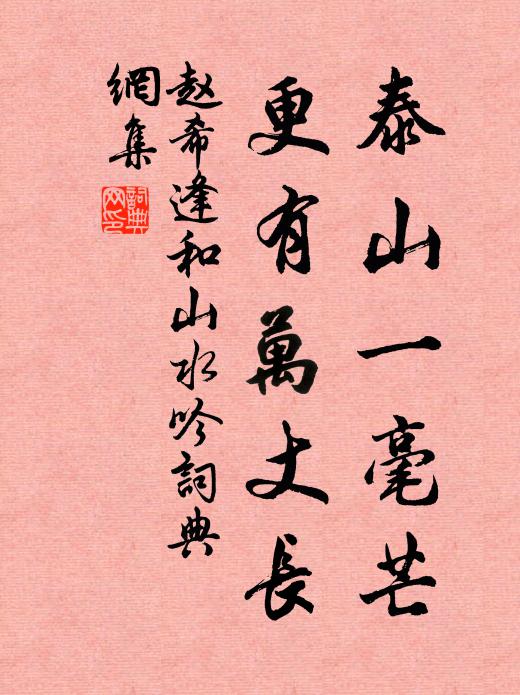 泰山一毫芒
更有萬丈長
赵希逢和山水吟詞典
網集
詞典
网印